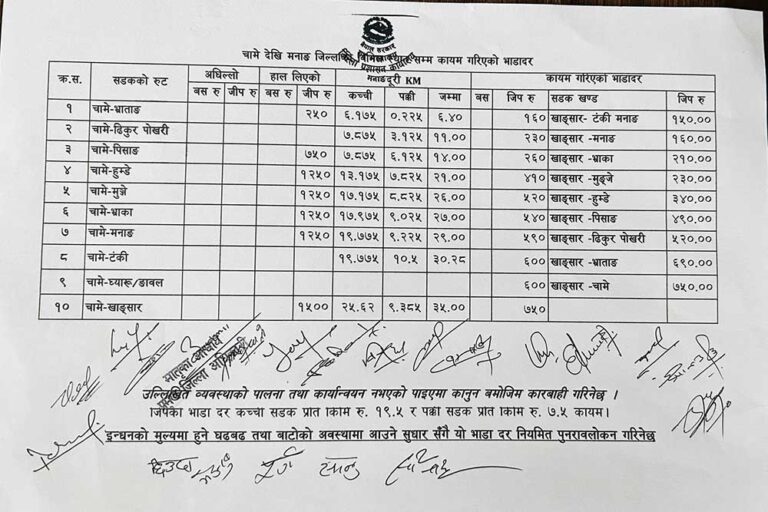 नेपाल सरकार
चामे देखि मनाङ जिल्लाका सम्म कायम गरिएको भाडादर
क्र.स. सडकको रुट अघिल्लो हाल लिएको दूरी KM कायम गरिएको भाडादर
बस रु जीप रु बस रु जीप रु कच्ची पक्की जम्मा बस जिप रु सडक खण्ड जिप रु
१ चामे-भ्राताङ २५० ६.१७५ ०.२२५ ६.४० १६० खाङ्सार- टंकी मनाङ १५०.००
२ चामे-ढिकुर पोखरी ७.८७५ ३.१२५ ११.०० २३० खाङ्सार -मनाङ १६०.००
३ चामे-पिसाङ ७५० ७.८७५ ६.१२५ १४.०० २६० खाङ्सार -भ्राका २१०.००
४ चामे-हुम्डे १२५० १३.१७५ ७.८२५ २१.०० ४१० खाङ्सार -मुञ्जे २३०.००
५ चामे-मुञ्जे १२५० १७.१७५ ८.८२५ २६.०० ५२० खाङ्सार -हुम्डे ३४०.००
६ चामे-भ्राका १२५० १७.९७५ ९.०२५ २७.०० ५४० खाङ्सार -पिसाङ ४९०.००
७ चामे-मनाङ १२५० १९.७७५ ९.२२५ २९.०० ५९० खाङ्सार -ढिकुर पोखरी ५२०.००
८ चामे-टंकी १९.७७५ १०.५ ३०.२८ ६०० खाङ्सार -भ्राताङ ६९०.००
९ चामे-घ्यारू/ङावल ६०० खाङ्सार -चामे ७५०.००
१० चामे-खाङ्सार १५०० २५.६२ ९.३८५ ३५.०० ७५०
उल्लिखित व्यवस्थाको पालना तथा कार्यान्वयन नभएको पाइएमा कानुन बमोजिम कारबाही गरिनेछ ।
जिपका भाडा दर कच्ची सडक प्रति किमि रु. १९.५ र पक्की सडक प्रति किमि रु. ७.५ कायम।
इन्धनको मुल्यमा हुने घढबढ तथा बाटोको अवस्थामा आउने सुधार सँगै यो भाडा दर नियमित पुनरावलोकन गरिनेछ